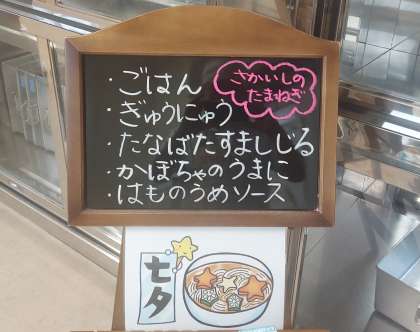 ・ごはん
・ぎゅうにゅう
・たなばたすましじる
・かぼちゃのうまに
・はものうめソース
さかいしの
たまねぎ
七夕